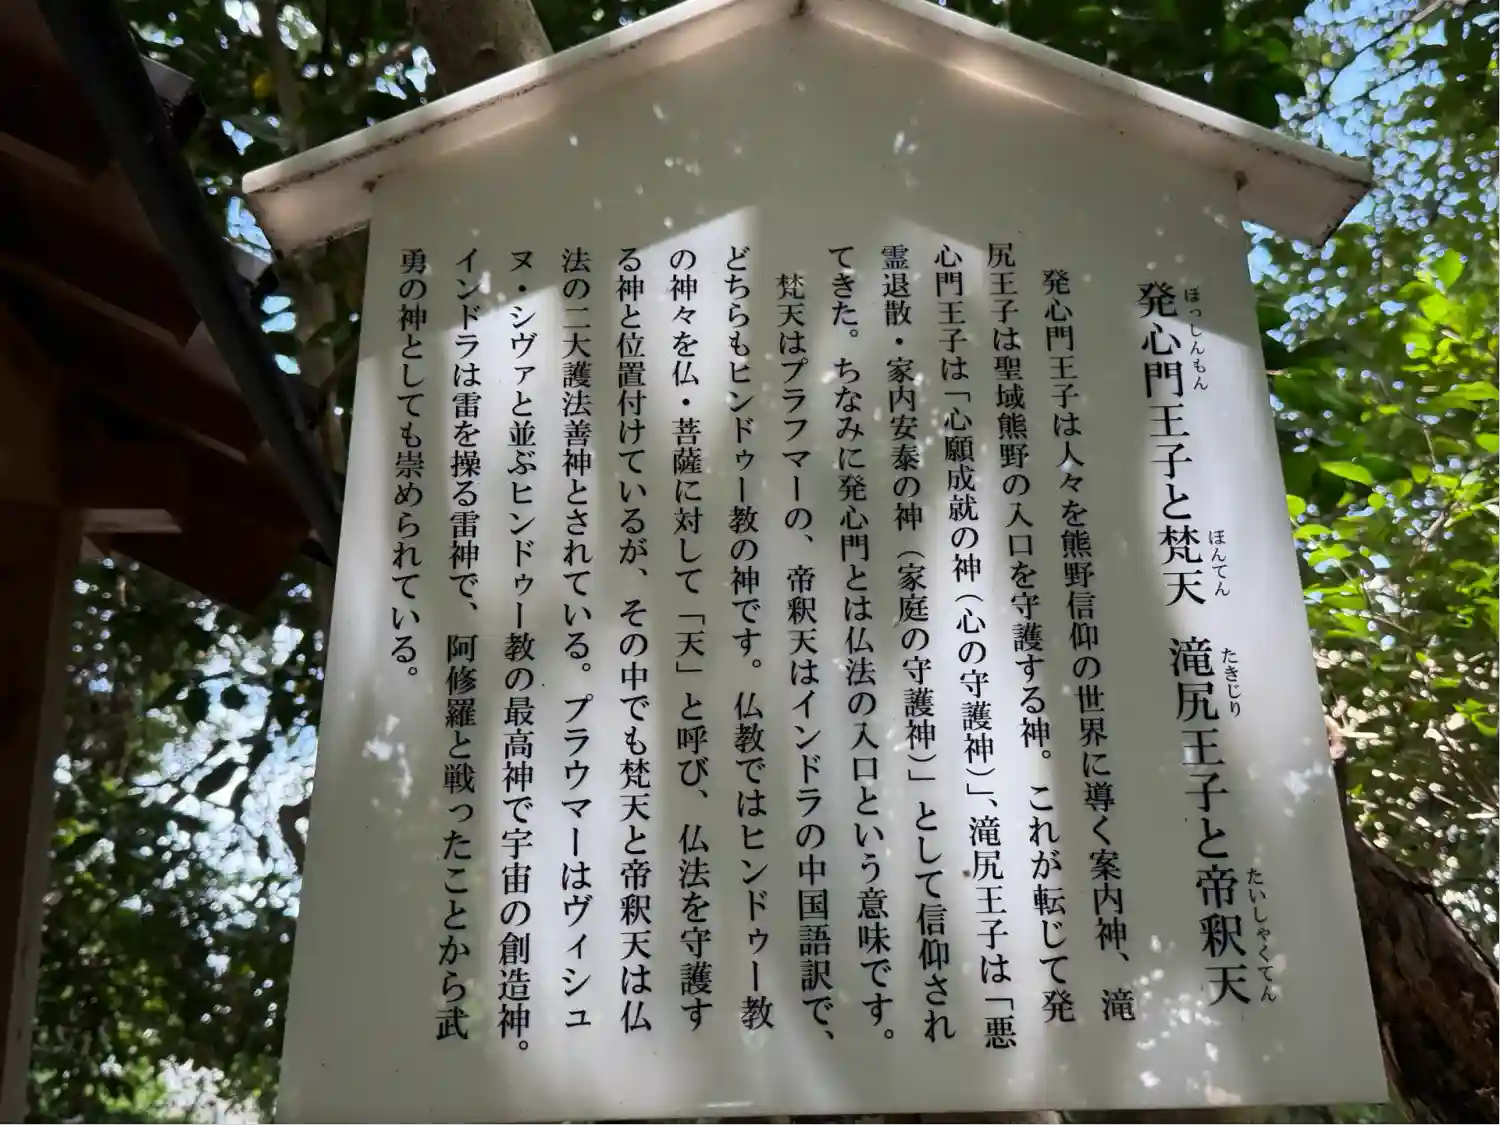 発心門王子と梵天　滝尻王子と帝釈天
ほっしんもん
ほんてん
たきじり
たいしゃくてん
発心門王子は人々を熊野信仰の世界に導く案内神、滝
尻王子は聖域熊野の入口を守護する神。これが転じて発
心門王子は「心願成就の神（心の守護神）」、滝尻王子は「悪
霊退散・家内安泰の神（家庭の守護神）」として信仰され
てきた。ちなみに発心門とは仏法の入口という意味です。
梵天はプラフマーの、帝釈天はインドラの中国語訳で、
どちらもヒンドゥー教の神です。仏教ではヒンドゥー教
の神々を仏・菩薩に対して「天」と呼び、仏法を守護す
る神と位置付けているが、その中でも梵天と帝釈天は仏
法の二大護法善神とされている。プラウマーはヴィシュ
ヌ・シヴァと並ぶヒンドゥー教の最高神で宇宙の創造神。
インドラは雷を操る雷神で、阿修羅と戦ったことから武
勇の神としても崇められている。